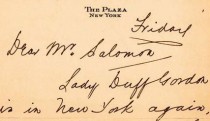 THE PLAZA
NEW YORK
Friday
Dear Mr. Salomon
Lady Duff Gordon
is in New York again,